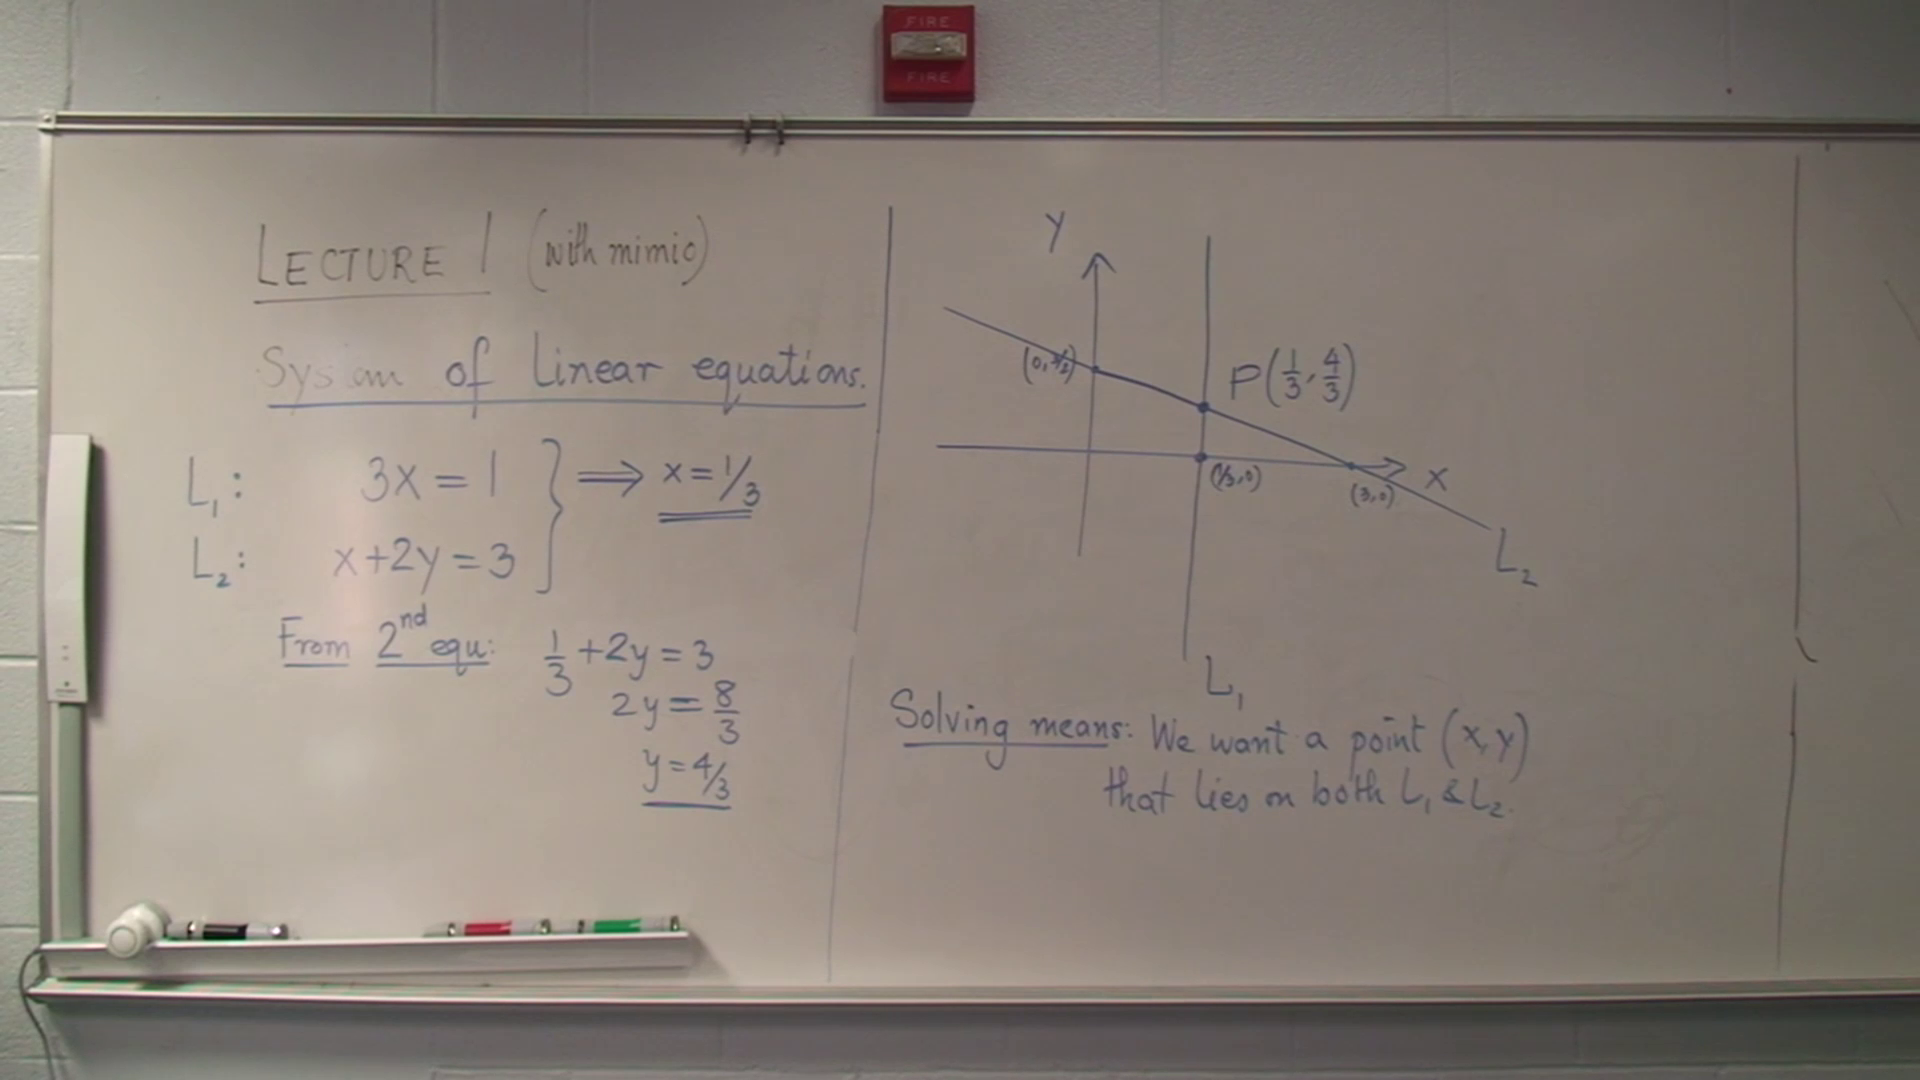 FIRE
FIRE
LECTURE 1 (with mimio)
System of Linear equations.
L₁: 3x = 1 } ⟹ x = 1/3
L₂: x+2y = 3
From 2nd equ: 1/3 + 2y = 3
2y = 8/3
y = 4/3
Y
(0, 3/2)
P(1/3, 4/3)
(1/3, 0)
(3, 0)
X
L₂
L₁
Solving means: We want a point (x, y)
that lies on both L₁ & L₂.